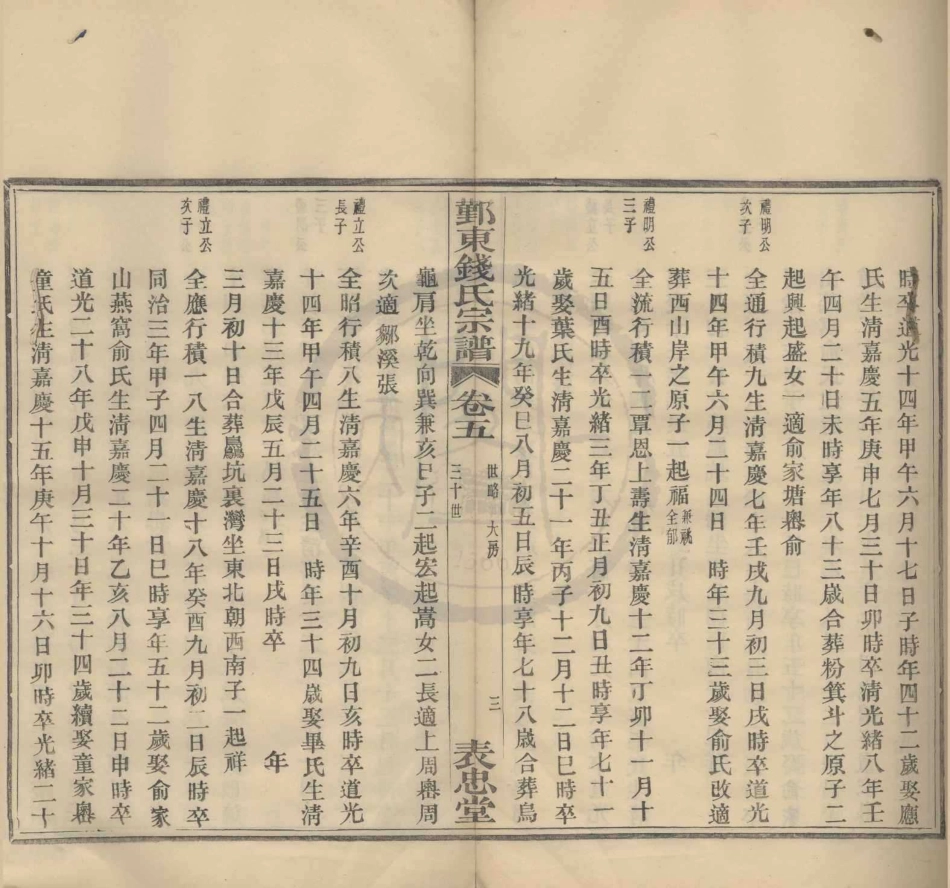 時卒道光十四年甲午六月十七日子時年四十二歲娶應
氏生清嘉慶五年庚申七月三十日卯時卒清光緒八年壬
午四月二十日未時享年八十三歲合葬粉箕斗之原子二
起興起盛女一適俞家塘嶴俞
禮明公
次子
全通行積九生清嘉慶七年壬戌九月初三日戌時卒道光
十四年甲午六月二十四日 時年三十三歲娶俞氏改適
葬西山岸之原子一起福兼祧全郁
禮明公
三子
全流行積一二覃恩上壽生清嘉慶十二年丁卯十一月十
五日酉時卒光緒三年丁丑正月初九日丑時享年七十一
歲娶葉氏生清嘉慶二十一年丙子十二月十二日巳時卒
光緒十九年癸巳八月初五日辰時享年七十八歲合葬烏
鄞東錢氏宗譜 卷五 世略 大房 三十世 三 表忠堂
龜肩坐乾向巽兼亥巳子二起宏起嵩女二長適上周嶴周
次適鄒溪張
禮立公
長子
全昭行積八生清嘉慶六年辛酉十月初九日亥時卒道光
十四年甲午四月二十五日 時年三十四歲娶畢氏生清
嘉慶十三年戊辰五月二十三日戌時卒 年
三月初十日合葬鸁坑裏灣坐東北朝西南子一起祥
禮立公
次子
全應行積一八生清嘉慶十八年癸酉九月初二日辰時卒
同治三年甲子四月二十一日巳時享年五十二歲娶俞家
山燕窩俞氏生清嘉慶二十年乙亥八月二十二日申時卒
道光二十八年戊申十月三十日年三十四歲續娶童家嶴
童氏生清嘉慶十五年庚午十月十六日卯時卒光緒二十